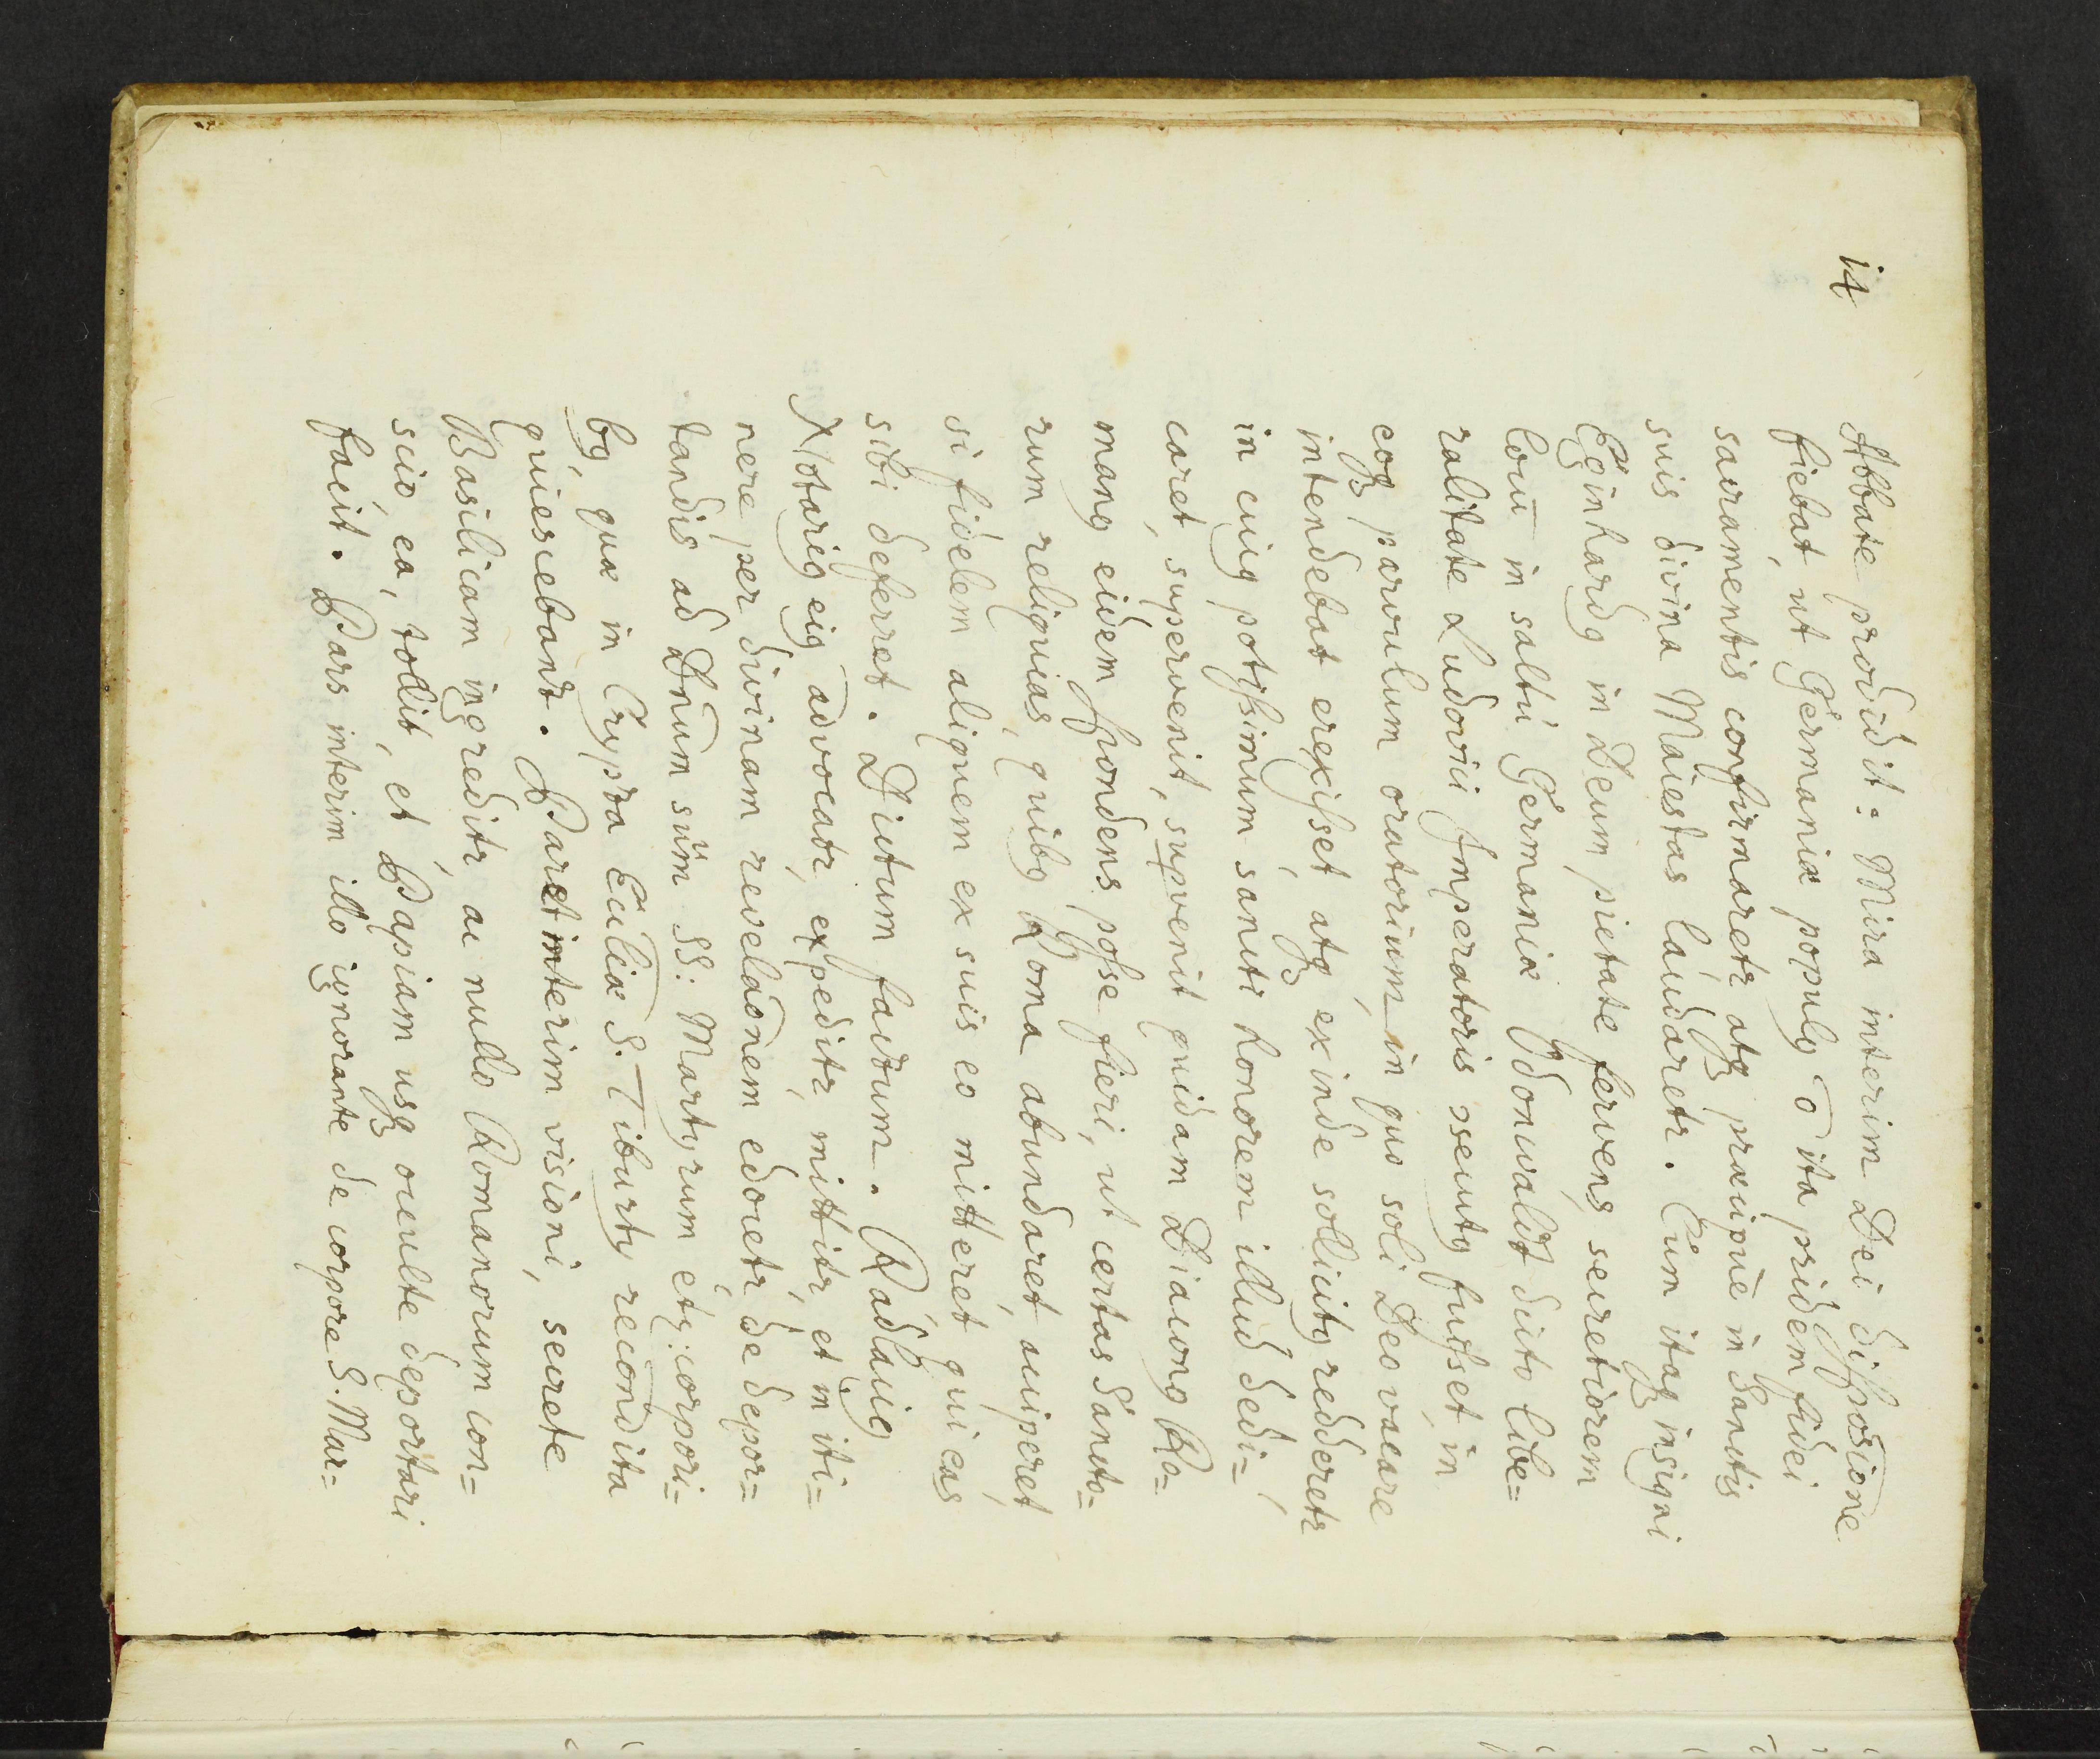 14
Abbate providit. Mira interim Dei dispositione
fiebat, ut Germaniæ populꝰ ō ita pridem fidei
sacramentis confirmaretr atqꝫ præcipuè in Sanctis
suis divina Maiestas laudaretr. Cùm itaqꝫ insigni
Eginhardꝰ in Deum pietate fervens, secretiorem
locū in saltu Germaniæ Odonwaldt dicto libe=
ralitate Ludovici Imperatoris ɔsecutꝰ fuisset, in
eoqꝫ parvulum oratorium, in quo soli Deo vacare
intendebat erexisset, atqꝫ exinde sollicitꝰ redderetr
in cuiꝰ potissimum sancti honorem illud dedi=
caret, supervenit, supvenit quidam Diaconꝰ Ro=
manꝰ eidem spondens posse fieri, ut certas Sancto=
rum reliquias, quibꝰ Roma abundaret, acciperet,
si fidelem aliquem ex suis eo mitteret qui eas
sibi deferret. Dictum factum. Radlaicꝰ
Notariꝰ eiꝰ advocatr, expeditr, mittitr, et in iti=
nere per divinam revelaõnem edocetr, de depor=
tandis ad Dnūm suūm SS. Martyrum etc. corpori=
bꝰ, quæ in Crypta Eccliæ S. Tiburtꝰ recondita
quiescebant. Paret interim visioni, secrete
Basilicam ingreditr ac nullo Romanorum con=
scio, ea, tollit, et Papiam usqꝫ occulte deportari
facit. Pars interim illo ignorante de corpore S. Mar=